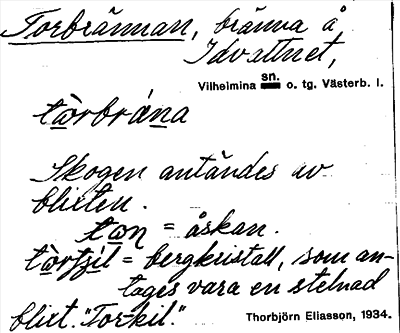 Torbrännan, bränna å
Idvattnet,
Vilhelmina sn. o. tg. Västerb. l.
tòrbrána
Skogen antändes av
blixten.
ton = åskan.
tòrtjil = bergkristall, som an-
tages vara en stelnad
blixt. "Torkil."
Thorbjörn Eliasson, 1934.